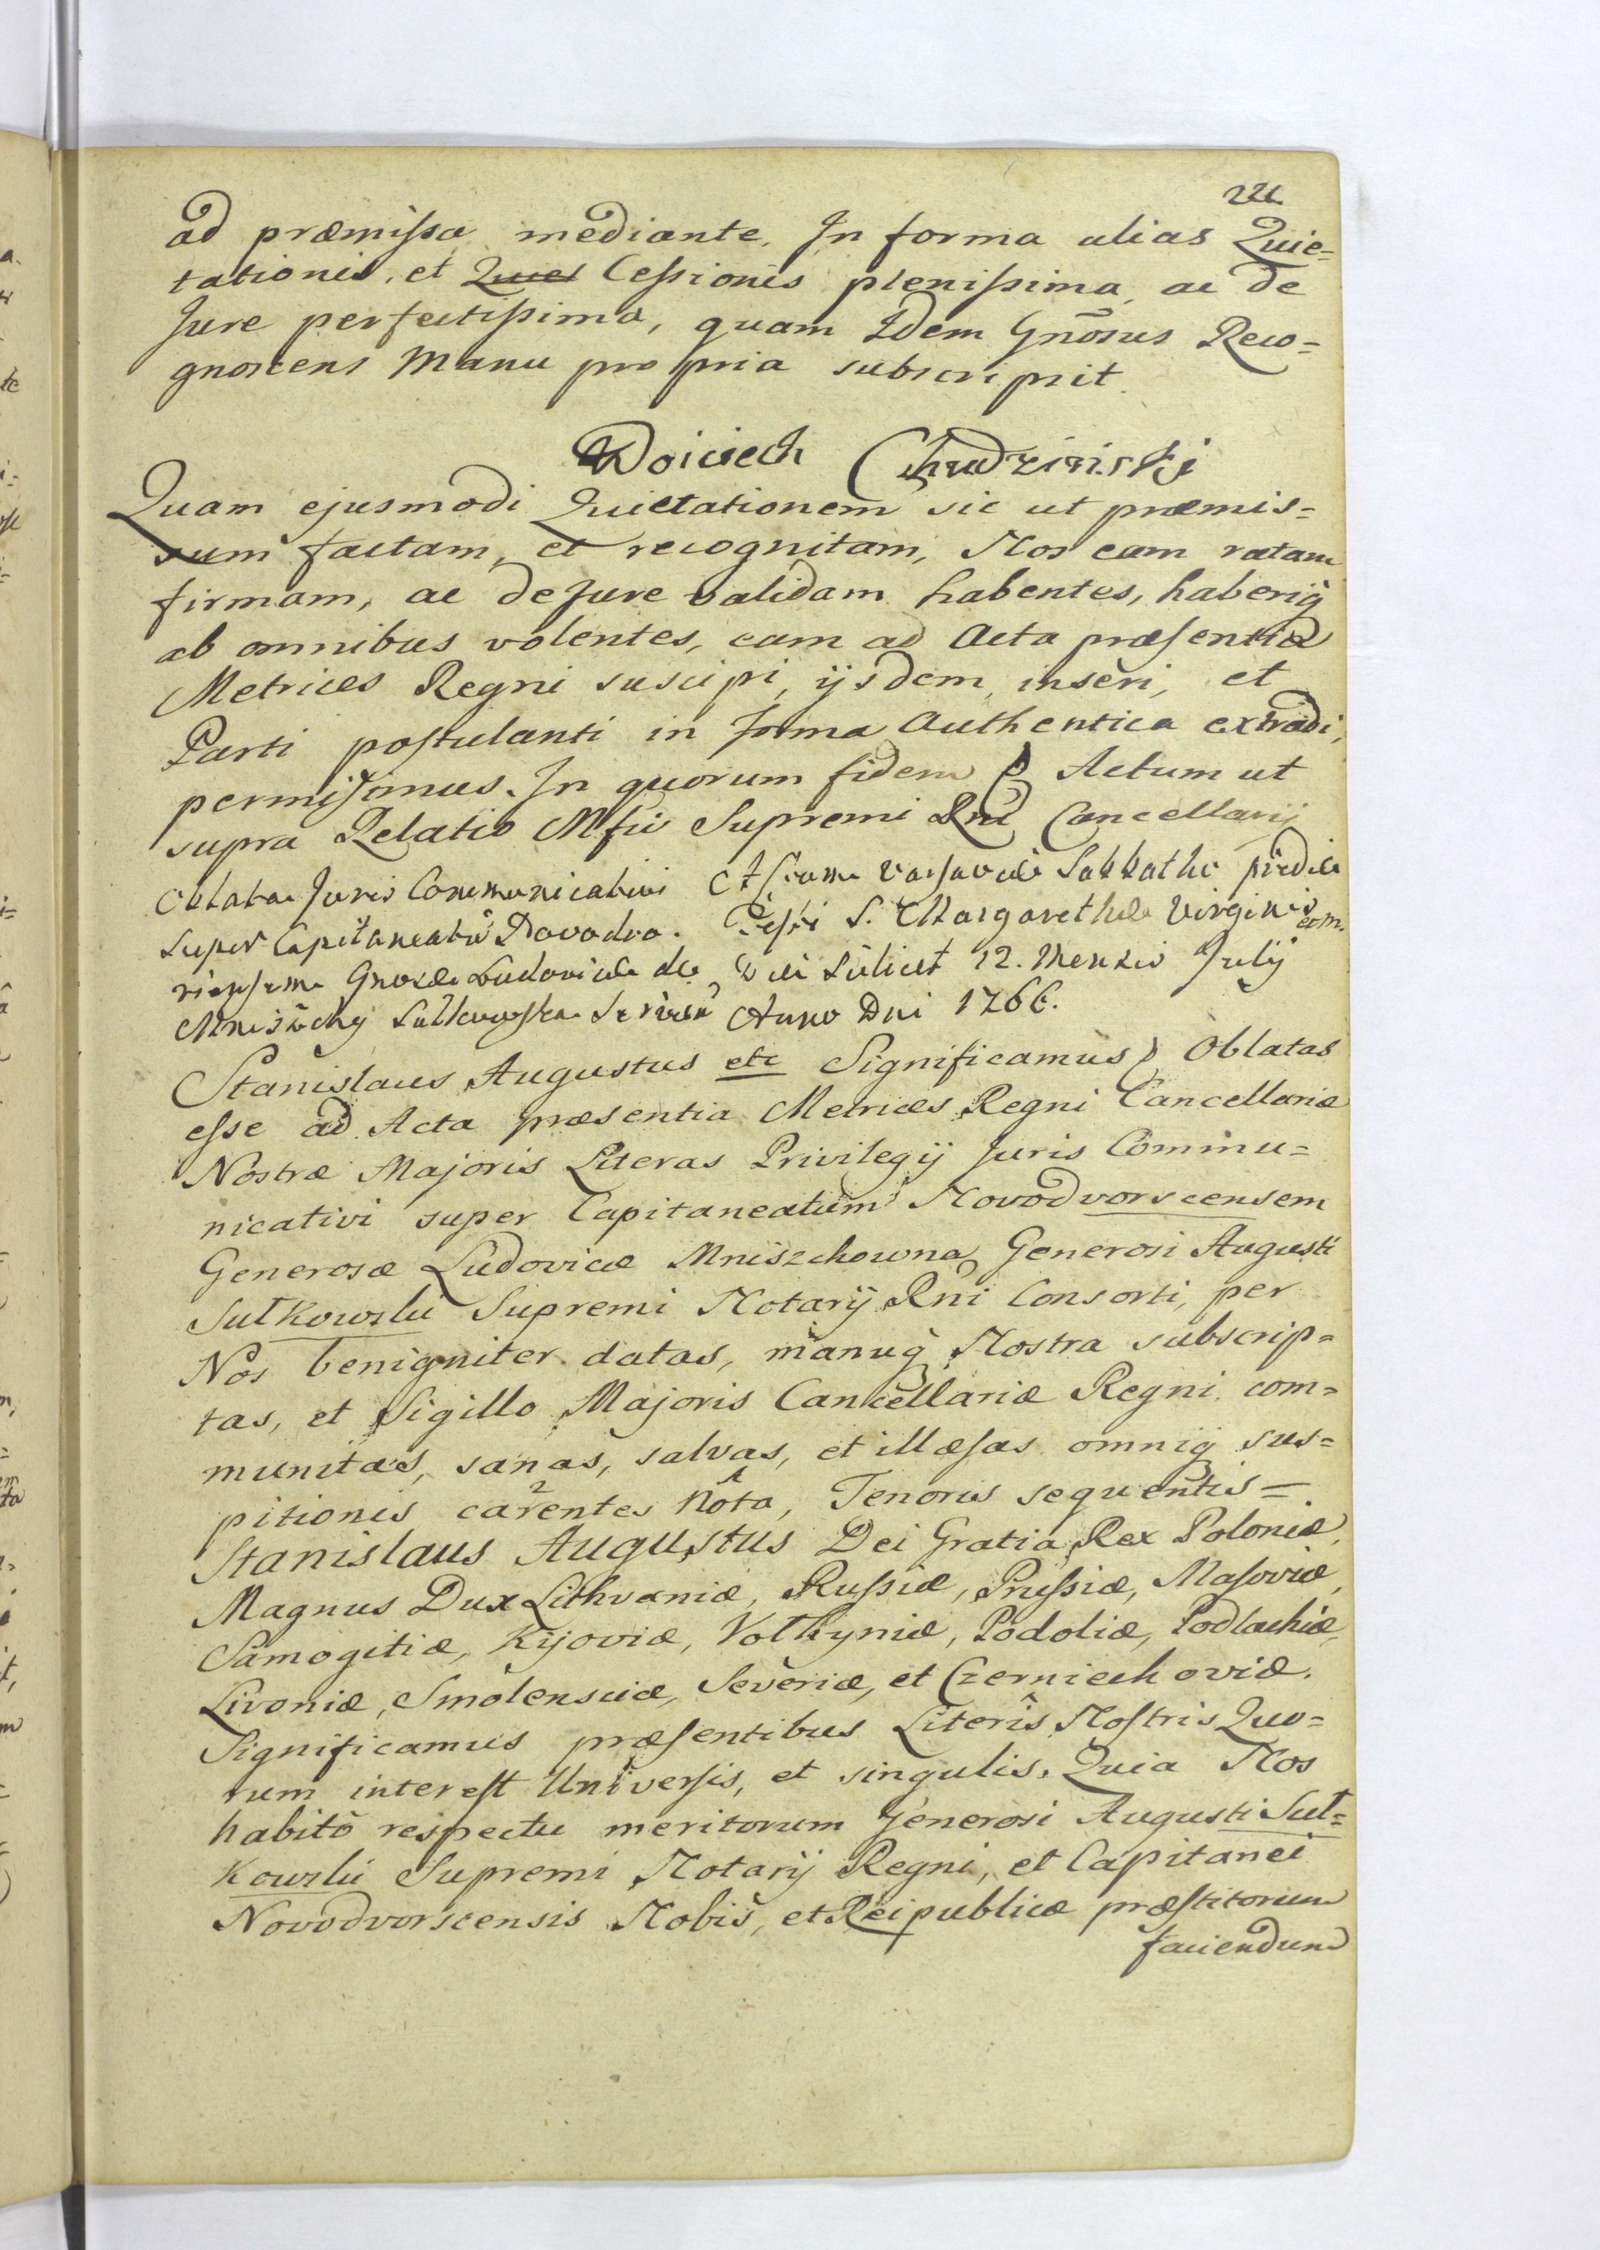 ad præmissa mediante, In forma alias Quie=
tationis, et Quiet Cessionis plenissima, ac de
Jure perfectissima, quam Idem Gnosus Reco=
gnoscens Manu propria subscripsit.
Woiciech Chudzinski
Quam ejusmodi Quietationem sic ut præmis=
sum factam, et recognitam, Nos eam ratam
firmam, ac de Jure validam habentes, haberiq
ab omnibus volentes, eam ad Acta præsentia
Metrices Regni suscipi, ijsdem, inseri, et
Parti postulanti in forma Authentica extradi,
permisimus. In quorum fidem Actum ut
supra Relatio Mfici Supremi Rni Cancellarij
Oblata Juris Communicativi
super Capitaneatu Novodvor.
riensem Gnosæ Ludovicæ de
Mniszchy Sulkowska servien
Actum Varsaviæ Sabbatho pridie
Festi S. Margarethæ Virginis
Die scilicet 12. Mensis Julij
Anno Dni 1766.
Stanislaus Augustus etc Significamus Oblatas
esse ad Acta præsentia Metrices Regni Cancellariæ
Nostræ Majoris Literas Privilegij Juris Commu=
nicativi super Capitaneatum Novodvorscensem
Generosæ Ludovicæ Mniszchowna, Generosi Augusti
Sułkowski Supremi Notarij Rni Consorti, per
Nos benigniter datas, manuq Nostra subscrip=
tas, et Sigillo Majoris Cancellariæ Regni com=
munitas, sanas, salvas, et illæsas omniq sus=
pitionis carentes Nota, Tenoris sequentis =
Stanislaus Augustus Dei Gratia Rex Poloniæ,
Magnus Dux Lithvaniæ, Russiæ, Prussiæ, Masoviæ,
Samogitiæ, Kijoviæ, Volhyniæ, Podoliæ, Podlachiæ,
Livoniæ, Smolensciæ, Severiæ, et Czerniechoviæ.
Significamus præsentibus Literis Nostris Quo=
rum interest Universis, et singulis, Quia Nos
habito respectu meritorum Generosi Augusti Suł=
kowski Supremi Notarij Regni, et Capitanei
Novodvorscensis Nobis, et Reipublicæ præstitorum
faciendum